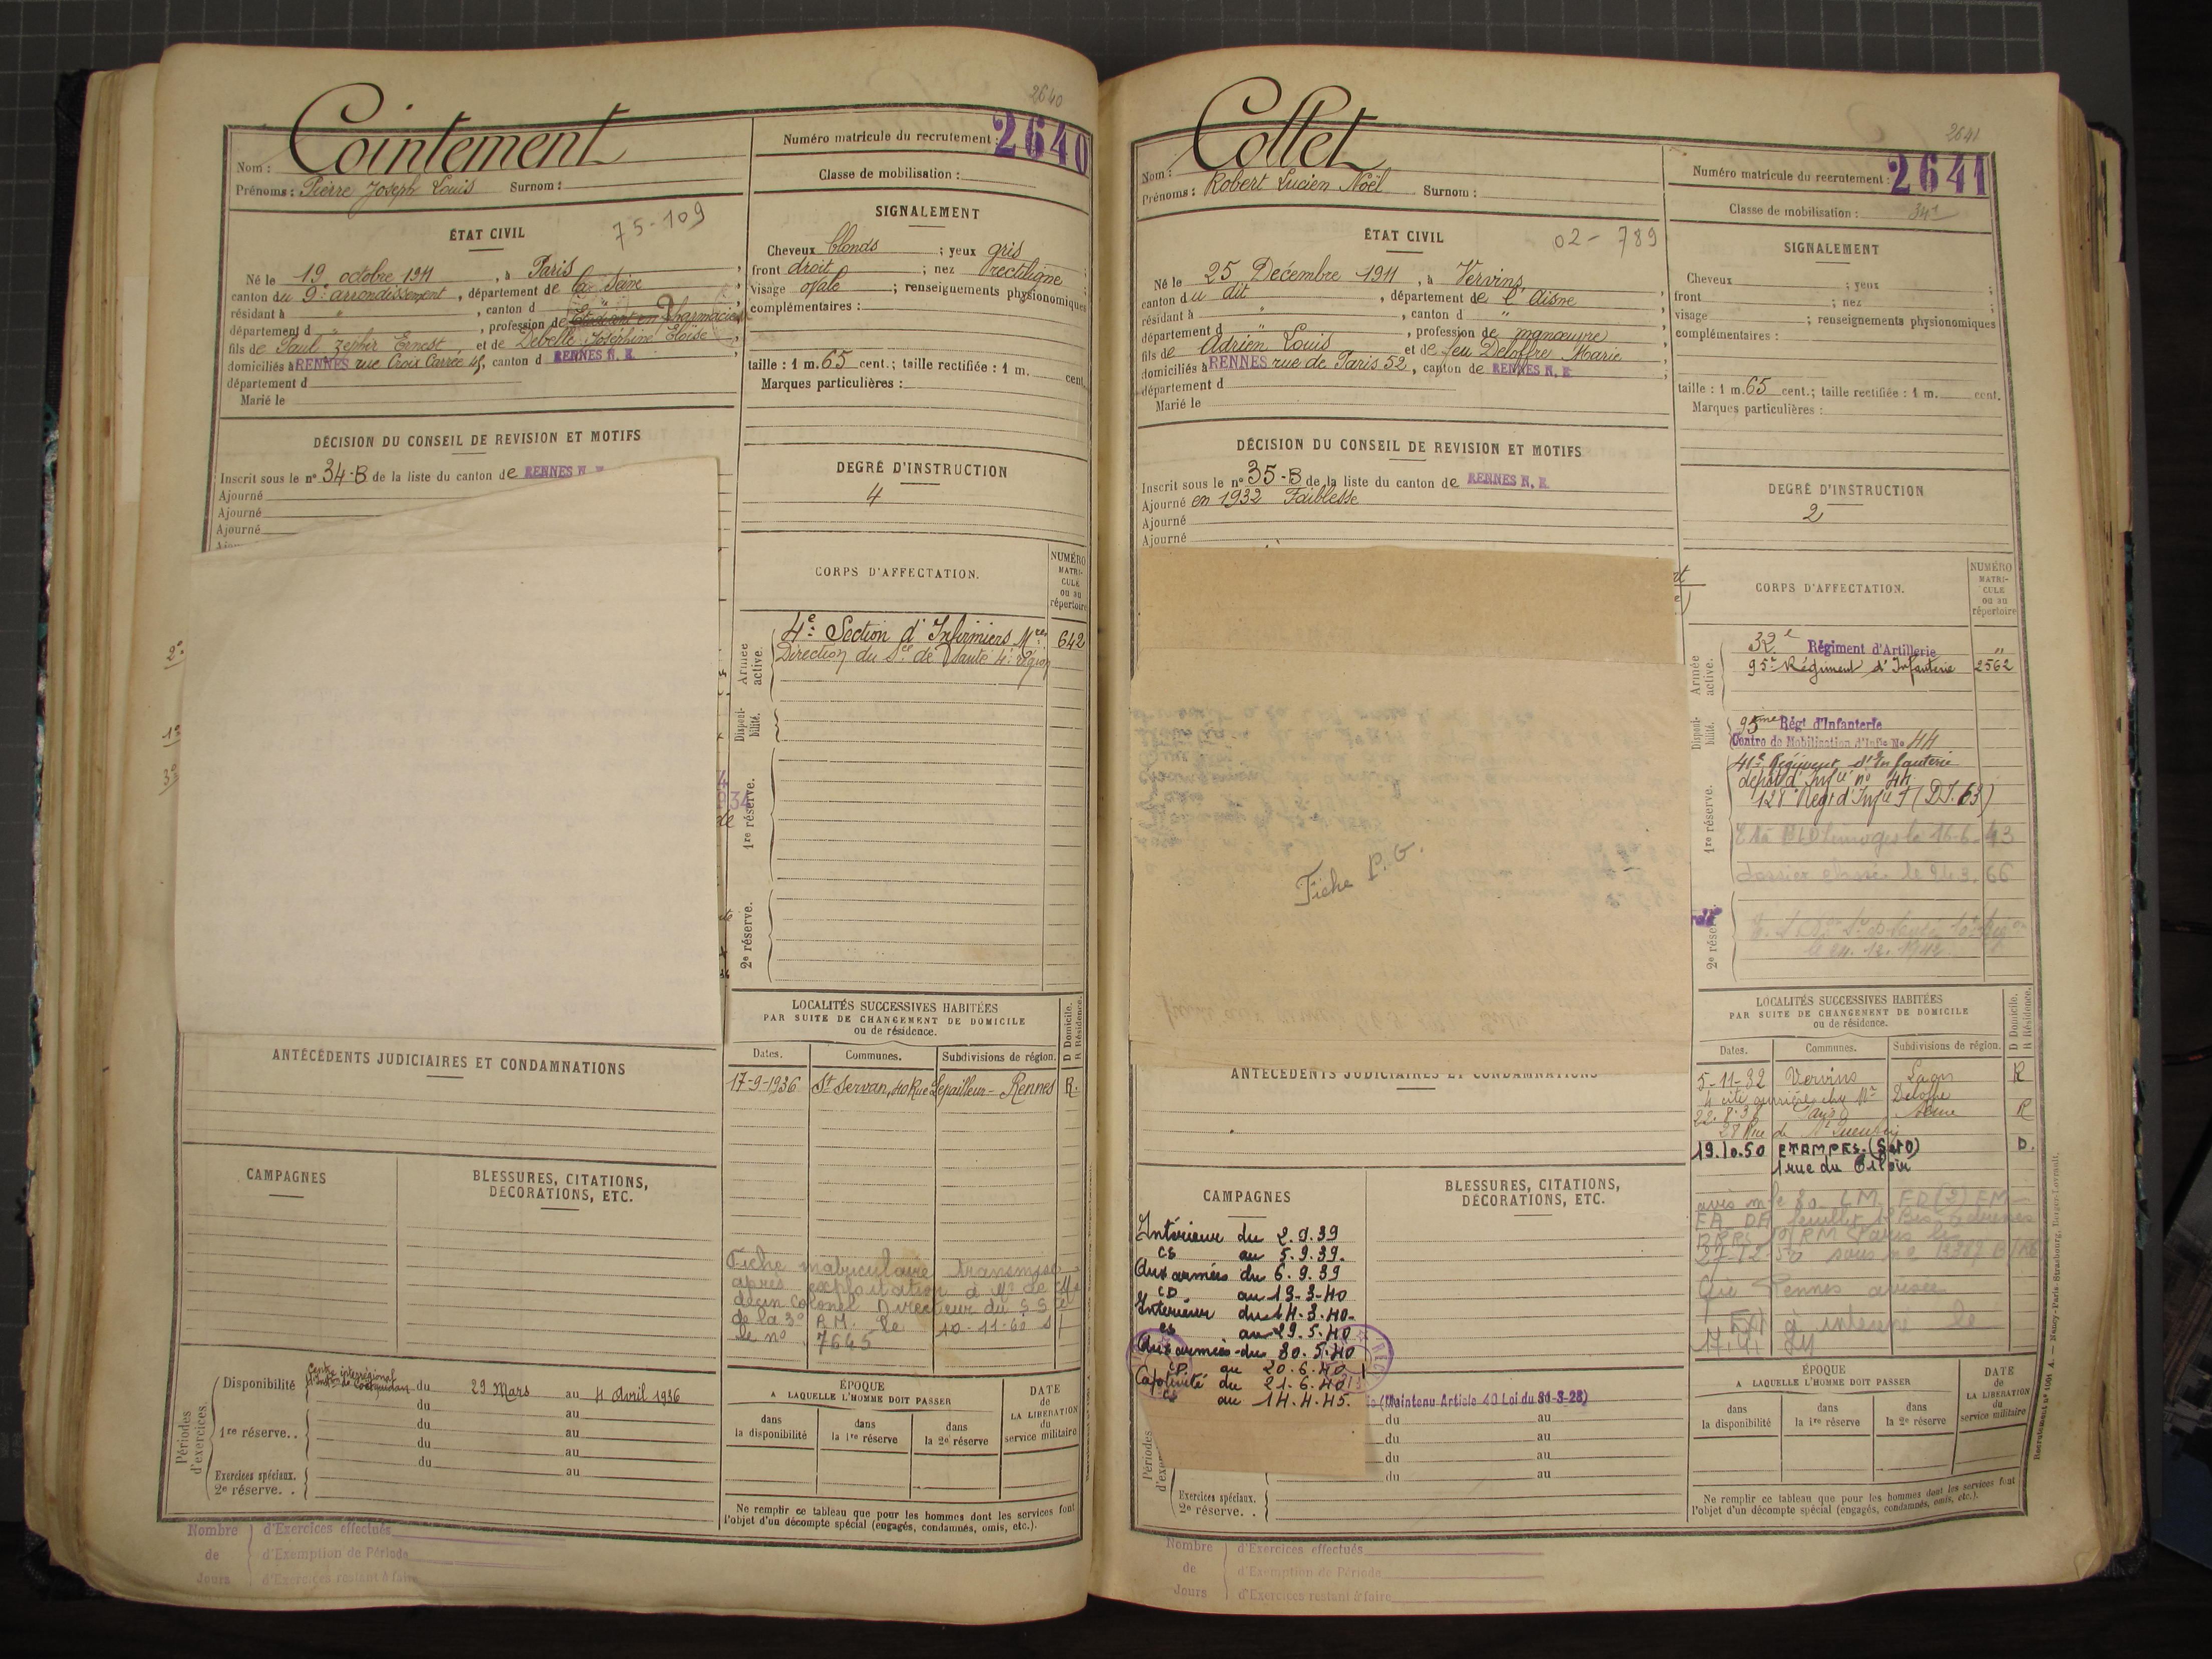 2640
Nom : Cointement
Prénoms : Pierre Joseph Louis Surnom :
Numéro matricule du recrutement : 2640
Classe de mobilisation :
ÉTAT CIVIL
75-109
Né le 19 octobre 1911, à Paris,
canton du 9e arrondissement, département de la Seine,
résidant à " , canton d "
département d " , profession de Etudiant en Pharmacie
fils de Paul Zephir Ernest, et de Debelle Joséphine Eloïse,
domiciliés à RENNES rue Croix Carrée 45, canton d RENNES N. E.
département d
Marié le
SIGNALEMENT
Cheveux blonds ; yeux gris ;
front droit ; nez rectiligne ;
visage ovale ; renseignements physionomiques
complémentaires :
taille : 1 m. 65 cent.; taille rectifiée : 1 m. cent.
Marques particulières :
DÉCISION DU CONSEIL DE REVISION ET MOTIFS
Inscrit sous le n° 34-B de la liste du canton de RENNES N
Ajourné
Ajourné
Ajourné
DEGRÉ D'INSTRUCTION
4
CORPS D'AFFECTATION.
NUMÉRO
MATRI-
CULE
ou au
répertoire
Armée active.
4e Section d'Infirmiers Mres 642
Direction du Sce de Santé 4e région
Disponi-
bilité.
1re réserve.
2e réserve.
2°
1°
3°
LOCALITÉS SUCCESSIVES HABITÉES
PAR SUITE DE CHANGEMENT DE DOMICILE
ou de résidence.
D Domicile.
R Résidence.
Dates. Communes. Subdivisions de région.
17-9-1936 St Servan, 40 Rue Lepailleur - Rennes R.
Fiche matriculaire transmise
après exploitation à Mr le Mé
decin Colonel Directeur du S S
de la 3e R.M. le 10-11-60 s/
le no 7645
ANTÉCÉDENTS JUDICIAIRES ET CONDAMNATIONS
CAMPAGNES
BLESSURES, CITATIONS,
DÉCORATIONS, ETC.
Périodes d'exercices.
Disponibilité Centre interrégional d'instron de Coëtquidan du 29 Mars au 4 Avril 1936
du au
1re réserve. . du au
du au
du au
Exercices spéciaux. au
2e réserve. .
ÉPOQUE
A LAQUELLE L'HOMME DOIT PASSER
dans la disponibilité
dans la 1re réserve
dans la 2e réserve
DATE
de
LA LIBÉRATION
du
service militaire
Ne remplir ce tableau que pour les hommes dont les services font
l'objet d'un décompte spécial (engagés, condamnés, omis, etc.).
Nombre d'Exercices effectués
de d'Exemption de Période
Jours d'Exercices restant à faire
2641
Nom : Collet
Prénoms : Robert Lucien Noël Surnom :
Numéro matricule du recrutement : 2641
Classe de mobilisation : 34 1
ÉTAT CIVIL
02-789
Né le 25 Décembre 1911, à Vervins,
canton du dit, département de l'Aisne,
résidant à " , canton d "
département d " , profession de manœuvre
fils de Adrien Louis et de feu Deloffre Marie
domiciliés à RENNES rue de Paris 52, canton de RENNES N. E.
département d
Marié le
SIGNALEMENT
Cheveux ; yeux ;
front ; nez ;
visage ; renseignements physionomiques
complémentaires :
taille : 1 m. 65 cent.; taille rectifiée : 1 m. cent.
Marques particulières :
DÉCISION DU CONSEIL DE REVISION ET MOTIFS
Inscrit sous le n° 35-B de la liste du canton de RENNES N. E.
Ajourné en 1932 Faiblesse
Ajourné
Ajourné
DEGRÉ D'INSTRUCTION
2
CORPS D'AFFECTATION.
NUMÉRO
MATRI-
CULE
ou au
répertoire
Armée active.
32e Régiment d'Artillerie "
95e Régiment d'Infanterie 2562
Disponi-
bilité.
95me Régt d'Infanterie
Centre de Mobilisation d'Infie No 44
1re réserve.
41e Régiment d'Infanterie
dépôt d'Infie no 44
128e Régt d'Infie F (D.I. 63)
E 15 BLD Limoges le 16-6-43
dossier classé le 24.3.66
2e réserve.
le 24.12.1942
Fiche P.G.
LOCALITÉS SUCCESSIVES HABITÉES
PAR SUITE DE CHANGEMENT DE DOMICILE
ou de résidence.
D Domicile.
R Résidence.
Dates. Communes. Subdivisions de région.
5-11-32 Vervins Laon R
4 cité ouvrière chez Mr Deloffre
22.8.38 Paris Seine R
28 Rue de St Quentin
19.10.50 ETAMPES. (S et O) D.
1 rue du Filoir
Gie Rennes avisée
ANTÉCÉDENTS JUDICIAIRES ET CONDAMNATIONS
CAMPAGNES
BLESSURES, CITATIONS,
DÉCORATIONS, ETC.
Intérieur du 2.9.39
CS au 5.9.39.
Aux armées du 6.9.39
CD au 13-3-40
Intérieur du 14.3.40-
CS au 29.5.40
Aux armées du 30.5.40
CD au 20.6.40
Captivité du 21.6.40
CS au 14.4.45.
(Maintenu Article 40 Loi du 31-3-28)
Périodes
du au
du au
du au
du au
Exercices spéciaux.
2e réserve. .
ÉPOQUE
A LAQUELLE L'HOMME DOIT PASSER
dans la disponibilité
dans la 1re réserve
dans la 2e réserve
DATE
de
LA LIBÉRATION
du
service militaire
Ne remplir ce tableau que pour les hommes dont les services font
l'objet d'un décompte spécial (engagés, condamnés, omis, etc.).
Nombre d'Exercices effectués
de d'Exemption de Période
Jours d'Exercices restant à faire
Nancy-Paris-Strasbourg, Berger-Levrault.